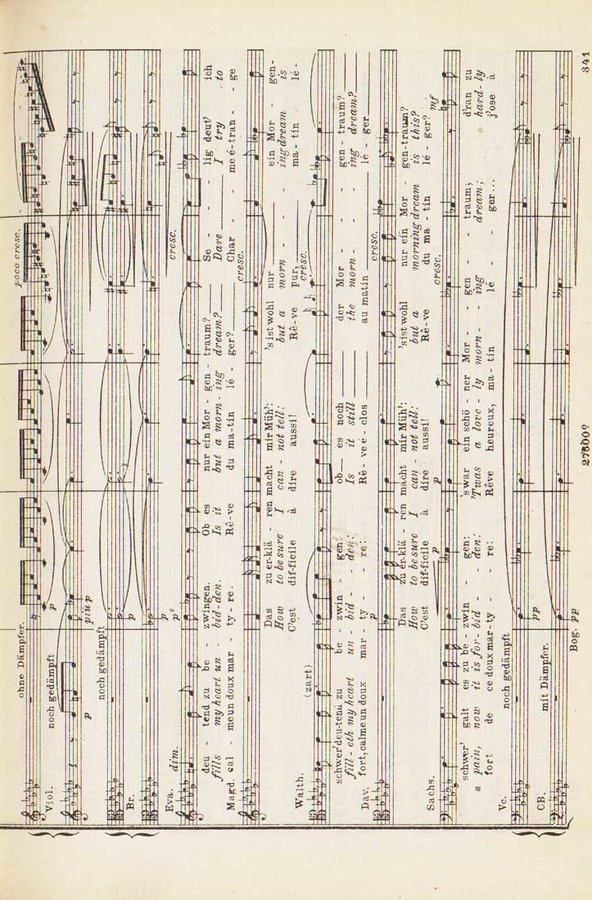 341
ohne Dämpfer.
poco cresc.
Viol.
p
noch gedämpft
p
più p
noch gedämpft
Br.
p
p
Eva.
dim.
p
cresc.
deu - tend zu be - zwingen. Ob es nur ein Mor - gen - traum? Se - lig deut' ich
fills my heart un - bid-den. Is it but a morn - ing dream? Dare I try to
Magd. cal - me un doux mar - ty - re. Rê-ve du ma-tin lé - ger? Char - me é-tran - ge
cresc.
Das zu er-klä - ren macht mir Müh': 'sist wohl nur ein Mor - gen-
How to be sure I can - not tell: but a morn - ing dream is
C'est dif-ficile à dire aussi! Rê-ve pur, ma - tin lé -
Walth.
(zart)
cresc.
schwer'deu-tend zu be - zwin - gen: ob es noch der Mor - gen - traum?
fill - eth my heart un - bid - den: Is it still the morn - ing dream?
fort, calme un doux mar - ty - re: Rê-ve é - clos au matin lé - ger
Dav.
cresc.
Das zu er-klä - ren macht mir Müh': 'sist wohl nur ein Mor - gen-traum?
How to be sure I can - not tell: but a morning dream is this?
C'est dif-ficile à dire aussi! Rê-ve du ma - tin lé - ger?
Sachs.
p
p
cresc.
mf
schwer' galt es zu be - zwin - gen: 's war ein schö - ner Mor - gen - traum; d'ran zu
pain, now it is for - bid - den: 'Twas a love - ly morn - ing dream; hard - ly
fort de ce doux mar - ty - re: Rêve heureux, ma - tin lé - ger... j'ose à
noch gedämpft
Vc.
pp
mit Dämpfer.
CB.
Bog. pp